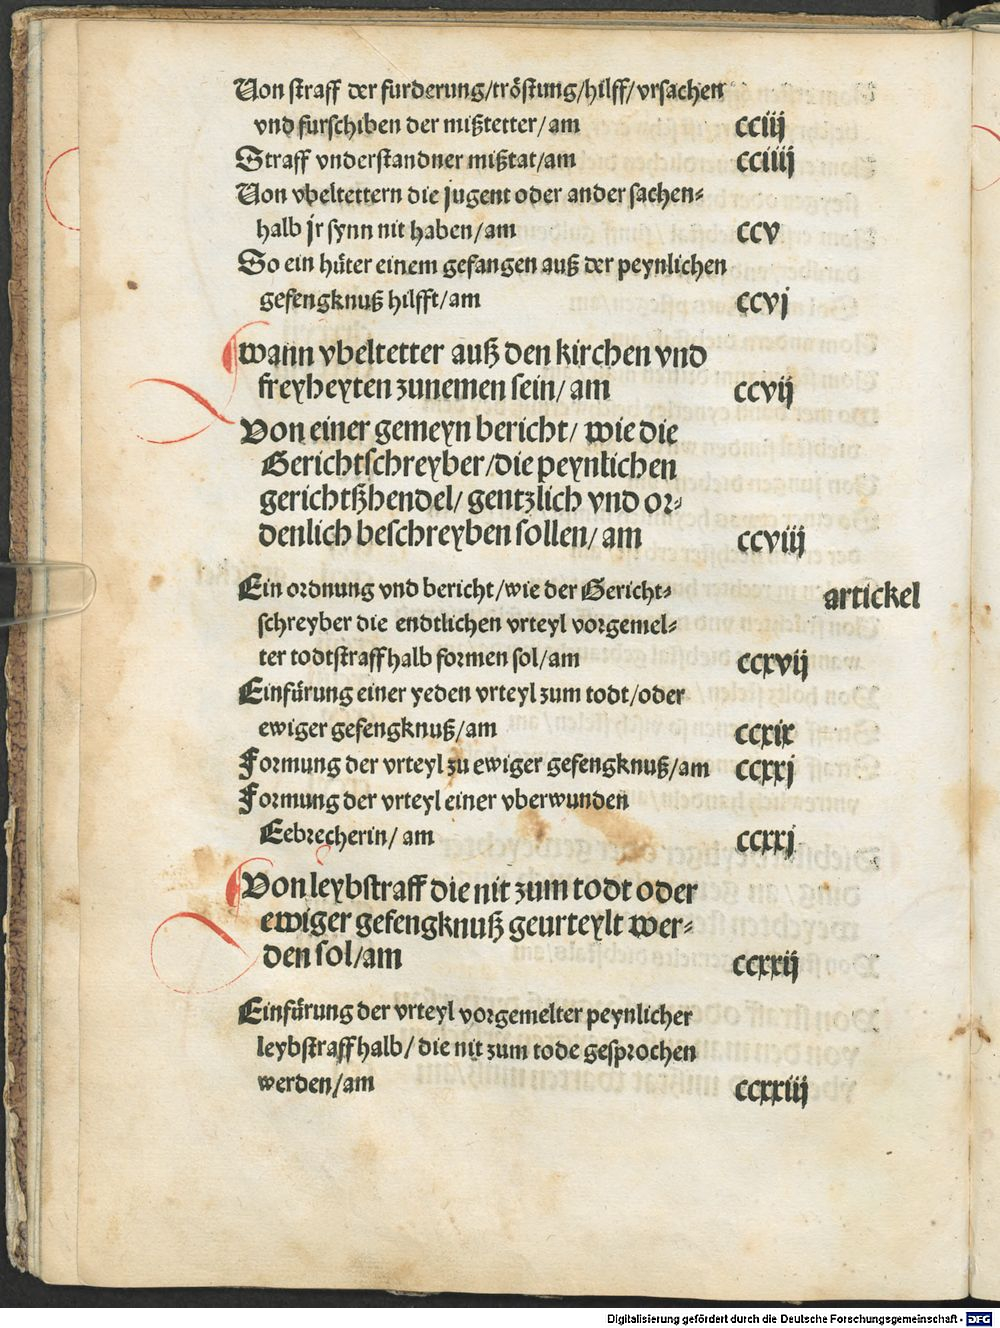 Von straff der furderung/tröstung/hilff/vrsachen
vnd furschiben der mißtetter/am cciij
Straff vnderstandner mißtat/am cciiij
Von vbeltettern die jugent oder ander sachen⸗
halb jr synn nit haben/am ccv
So ein hüter einem gefangen auß der peynlichen
gefengknuß hilfft/am ccvj
wann vbeltetter auß den kirchen vnd
freyheyten zunemen sein/am ccvij
Von einer gemeyn bericht/wie die
Gerichtschreyber/die peynlichen
gerichtßhendel/gentzlich vnd or⸗
denlich beschreyben sollen/am ccviij
Ein ordnung vnd bericht/wie der Gericht⸗ artickel
schreyber die endtlichen vrteyl vorgemel⸗
ter todtstraffhalb formen sol/am ccxvij
Einfürung einer yeden vrteyl zum todt/oder
ewiger gefengknuß/am ccxix
Formung der vrteyl zu ewiger gefengknuß/am ccxxj
Formung der vrteyl einer vberwunden
Eebrecherin/am ccxxj
Von leybstraff die nit zum todt oder
ewiger gefengknuß geurteylt wer⸗
den sol/am ccxxij
Einfürung der vrteyl vorgemelter peynlicher
leybstraffhalb/die nit zum tode gesprochen
werden/am ccxxiij
Digitalisierung gefördert durch die Deutsche Forschungsgemeinschaft - DFG